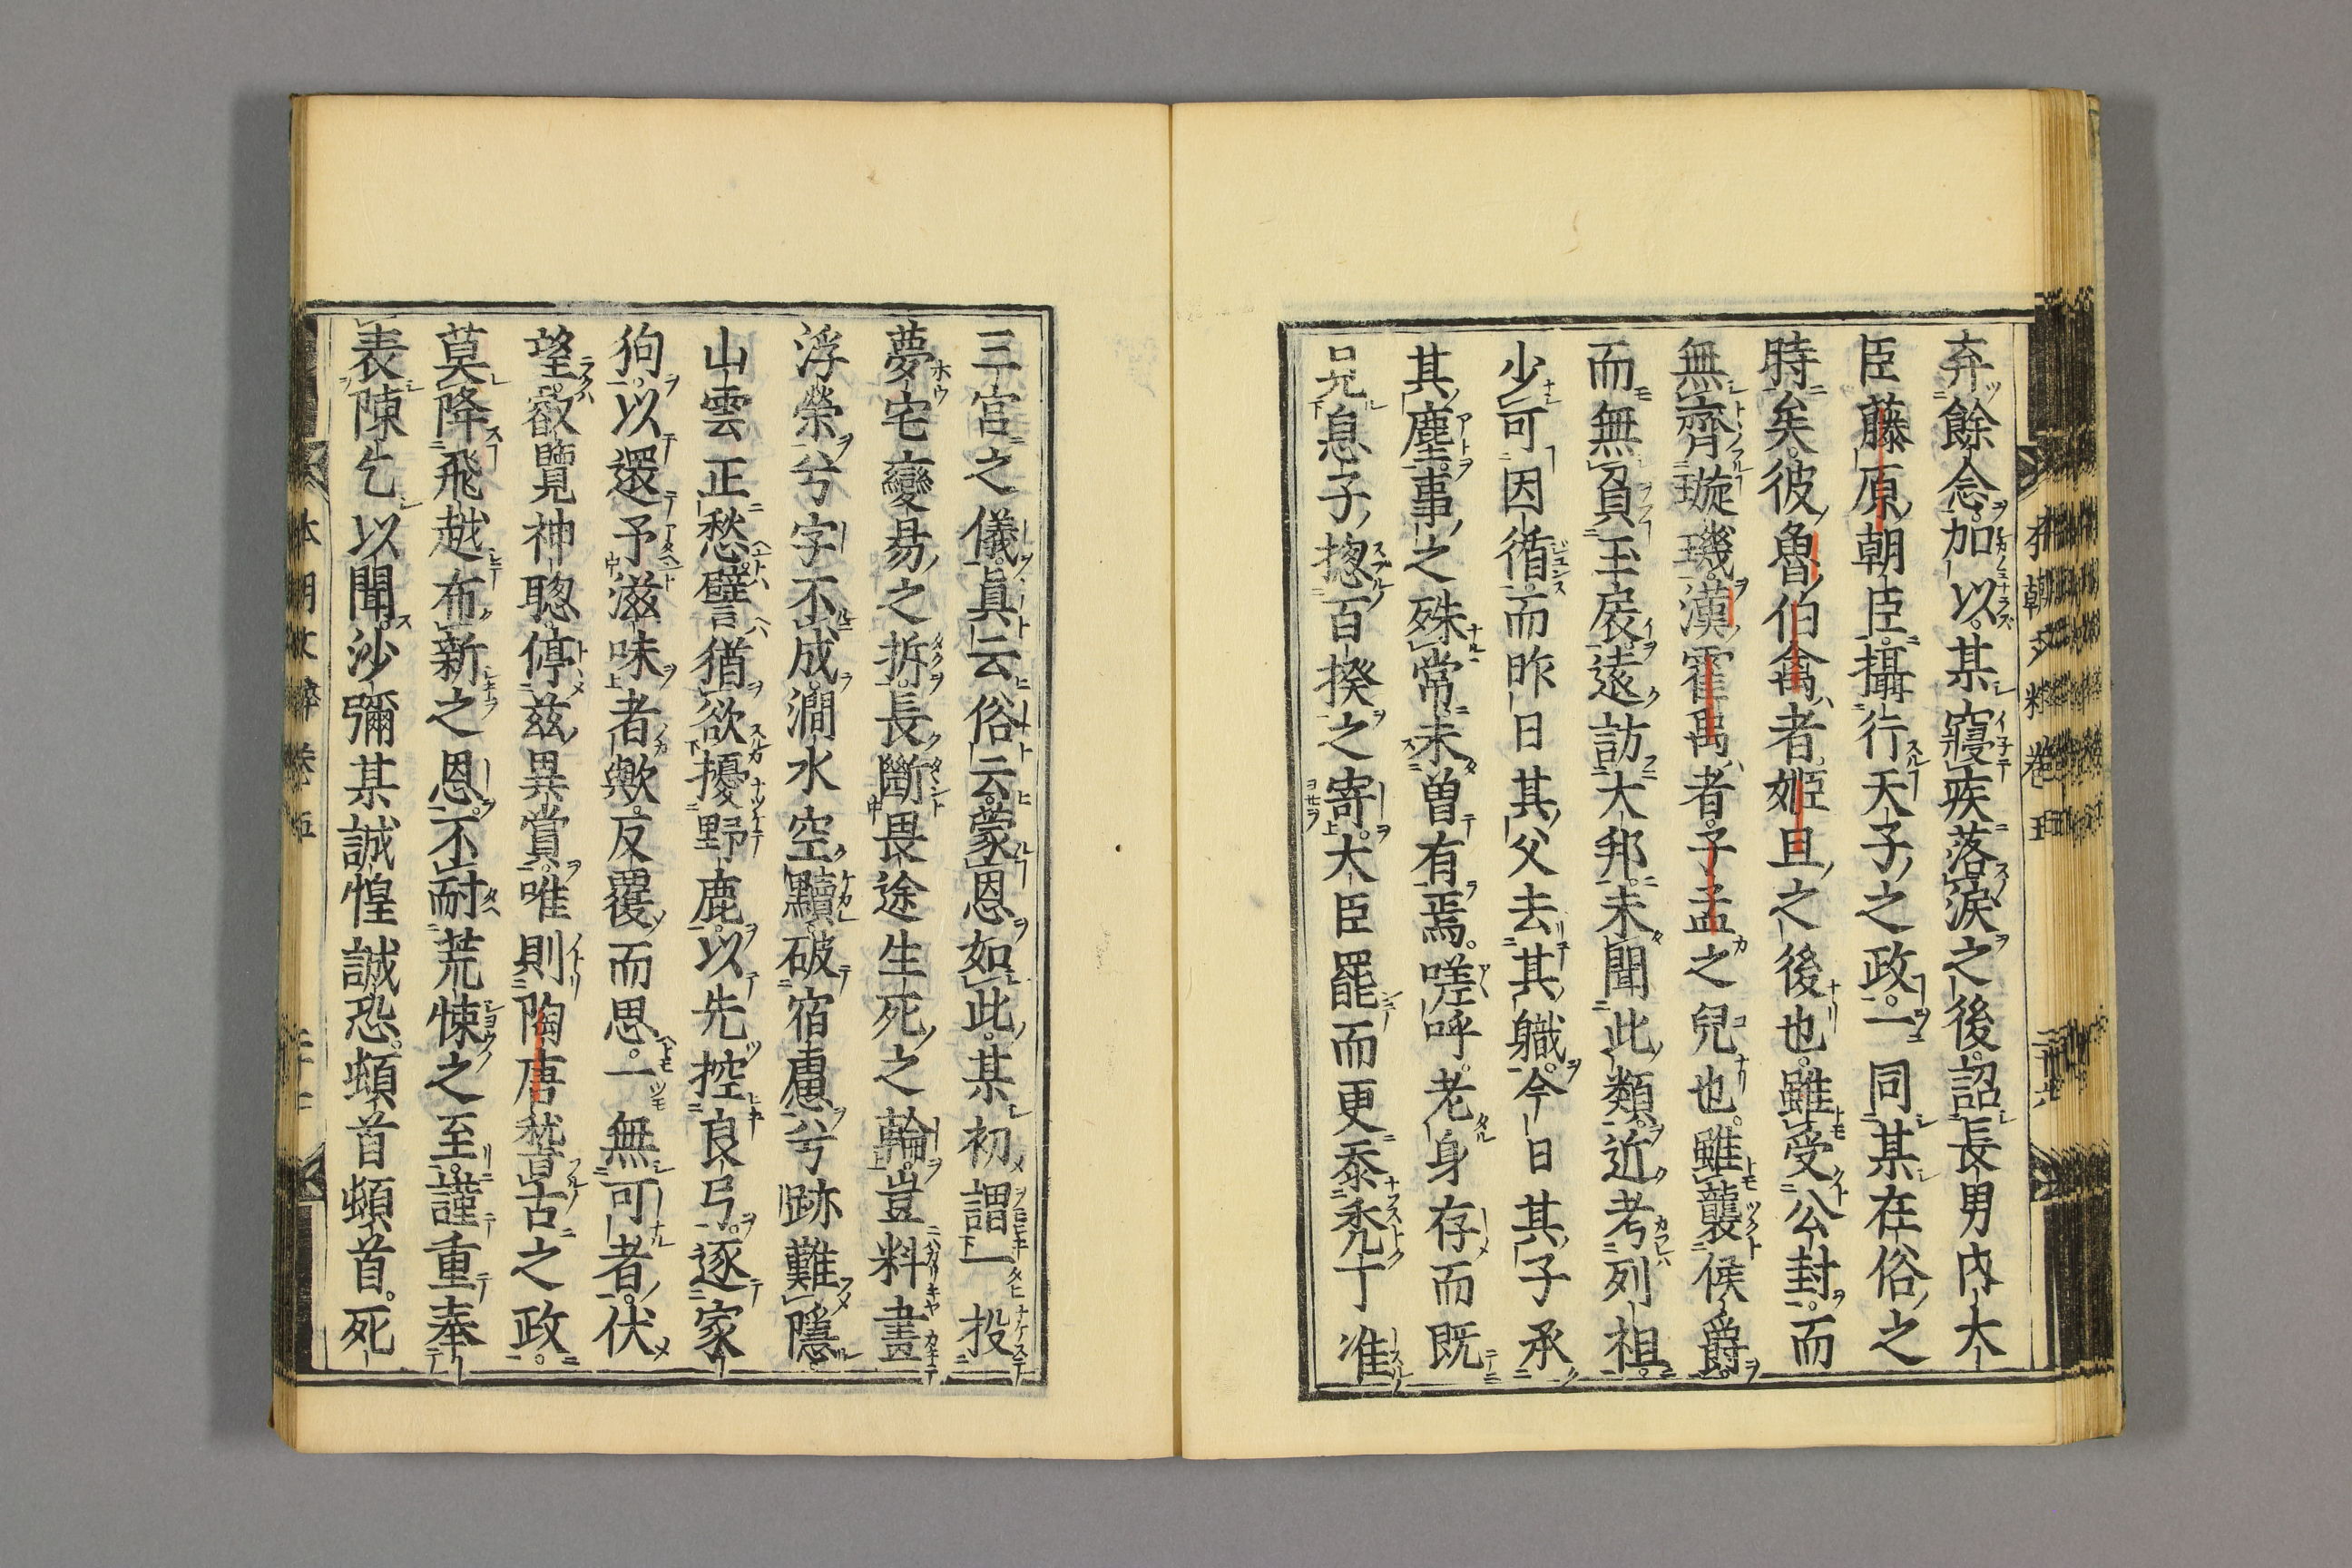 弃餘念加以某寢疾落淚之後詔長男内大
臣藤原朝臣攝行天子之政一同某在俗之
時矣彼魯伯禽者姬旦之後也雖受公封而
無齊璇璣漢霍禹者子孟之兒也雖襲候爵
而無負玉扆遠訪大邦未聞此類近考列祖
少可因循而昨日其父去其職今日其子承
其塵事之殊常未曽有焉嗟呼老身存而既
兄息子揔百揆之寄大臣罷而更忝禿丁准
三宮之儀眞云俗云蒙恩如此某初謂一投
夢宅變易之拆長斷畏途生死之輪豈料晝
浮榮兮字不成澗水空黷破宿慮兮跡難隱
山雲正愁譬猶欲擾野鹿以先控良弓逐家
狗以還予滋味者歟反覆而思一無可者伏
望叡覽神聡停茲異賞唯則陶唐嵆古之政
莫降飛越布新之恩不耐荒悚之至謹重奉
表陳乞以聞沙彌某誠惶誠恐頓首頓首死
本朝文粹卷五